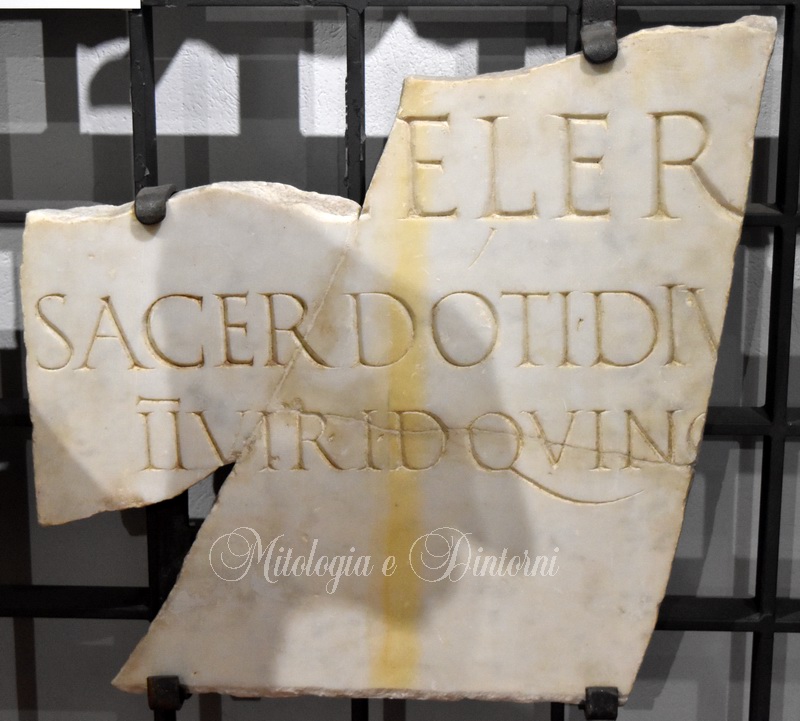 ELER
SACERDOTI·DIV
II VIR·I·D·QVINQ
Mitologia e Dintorni